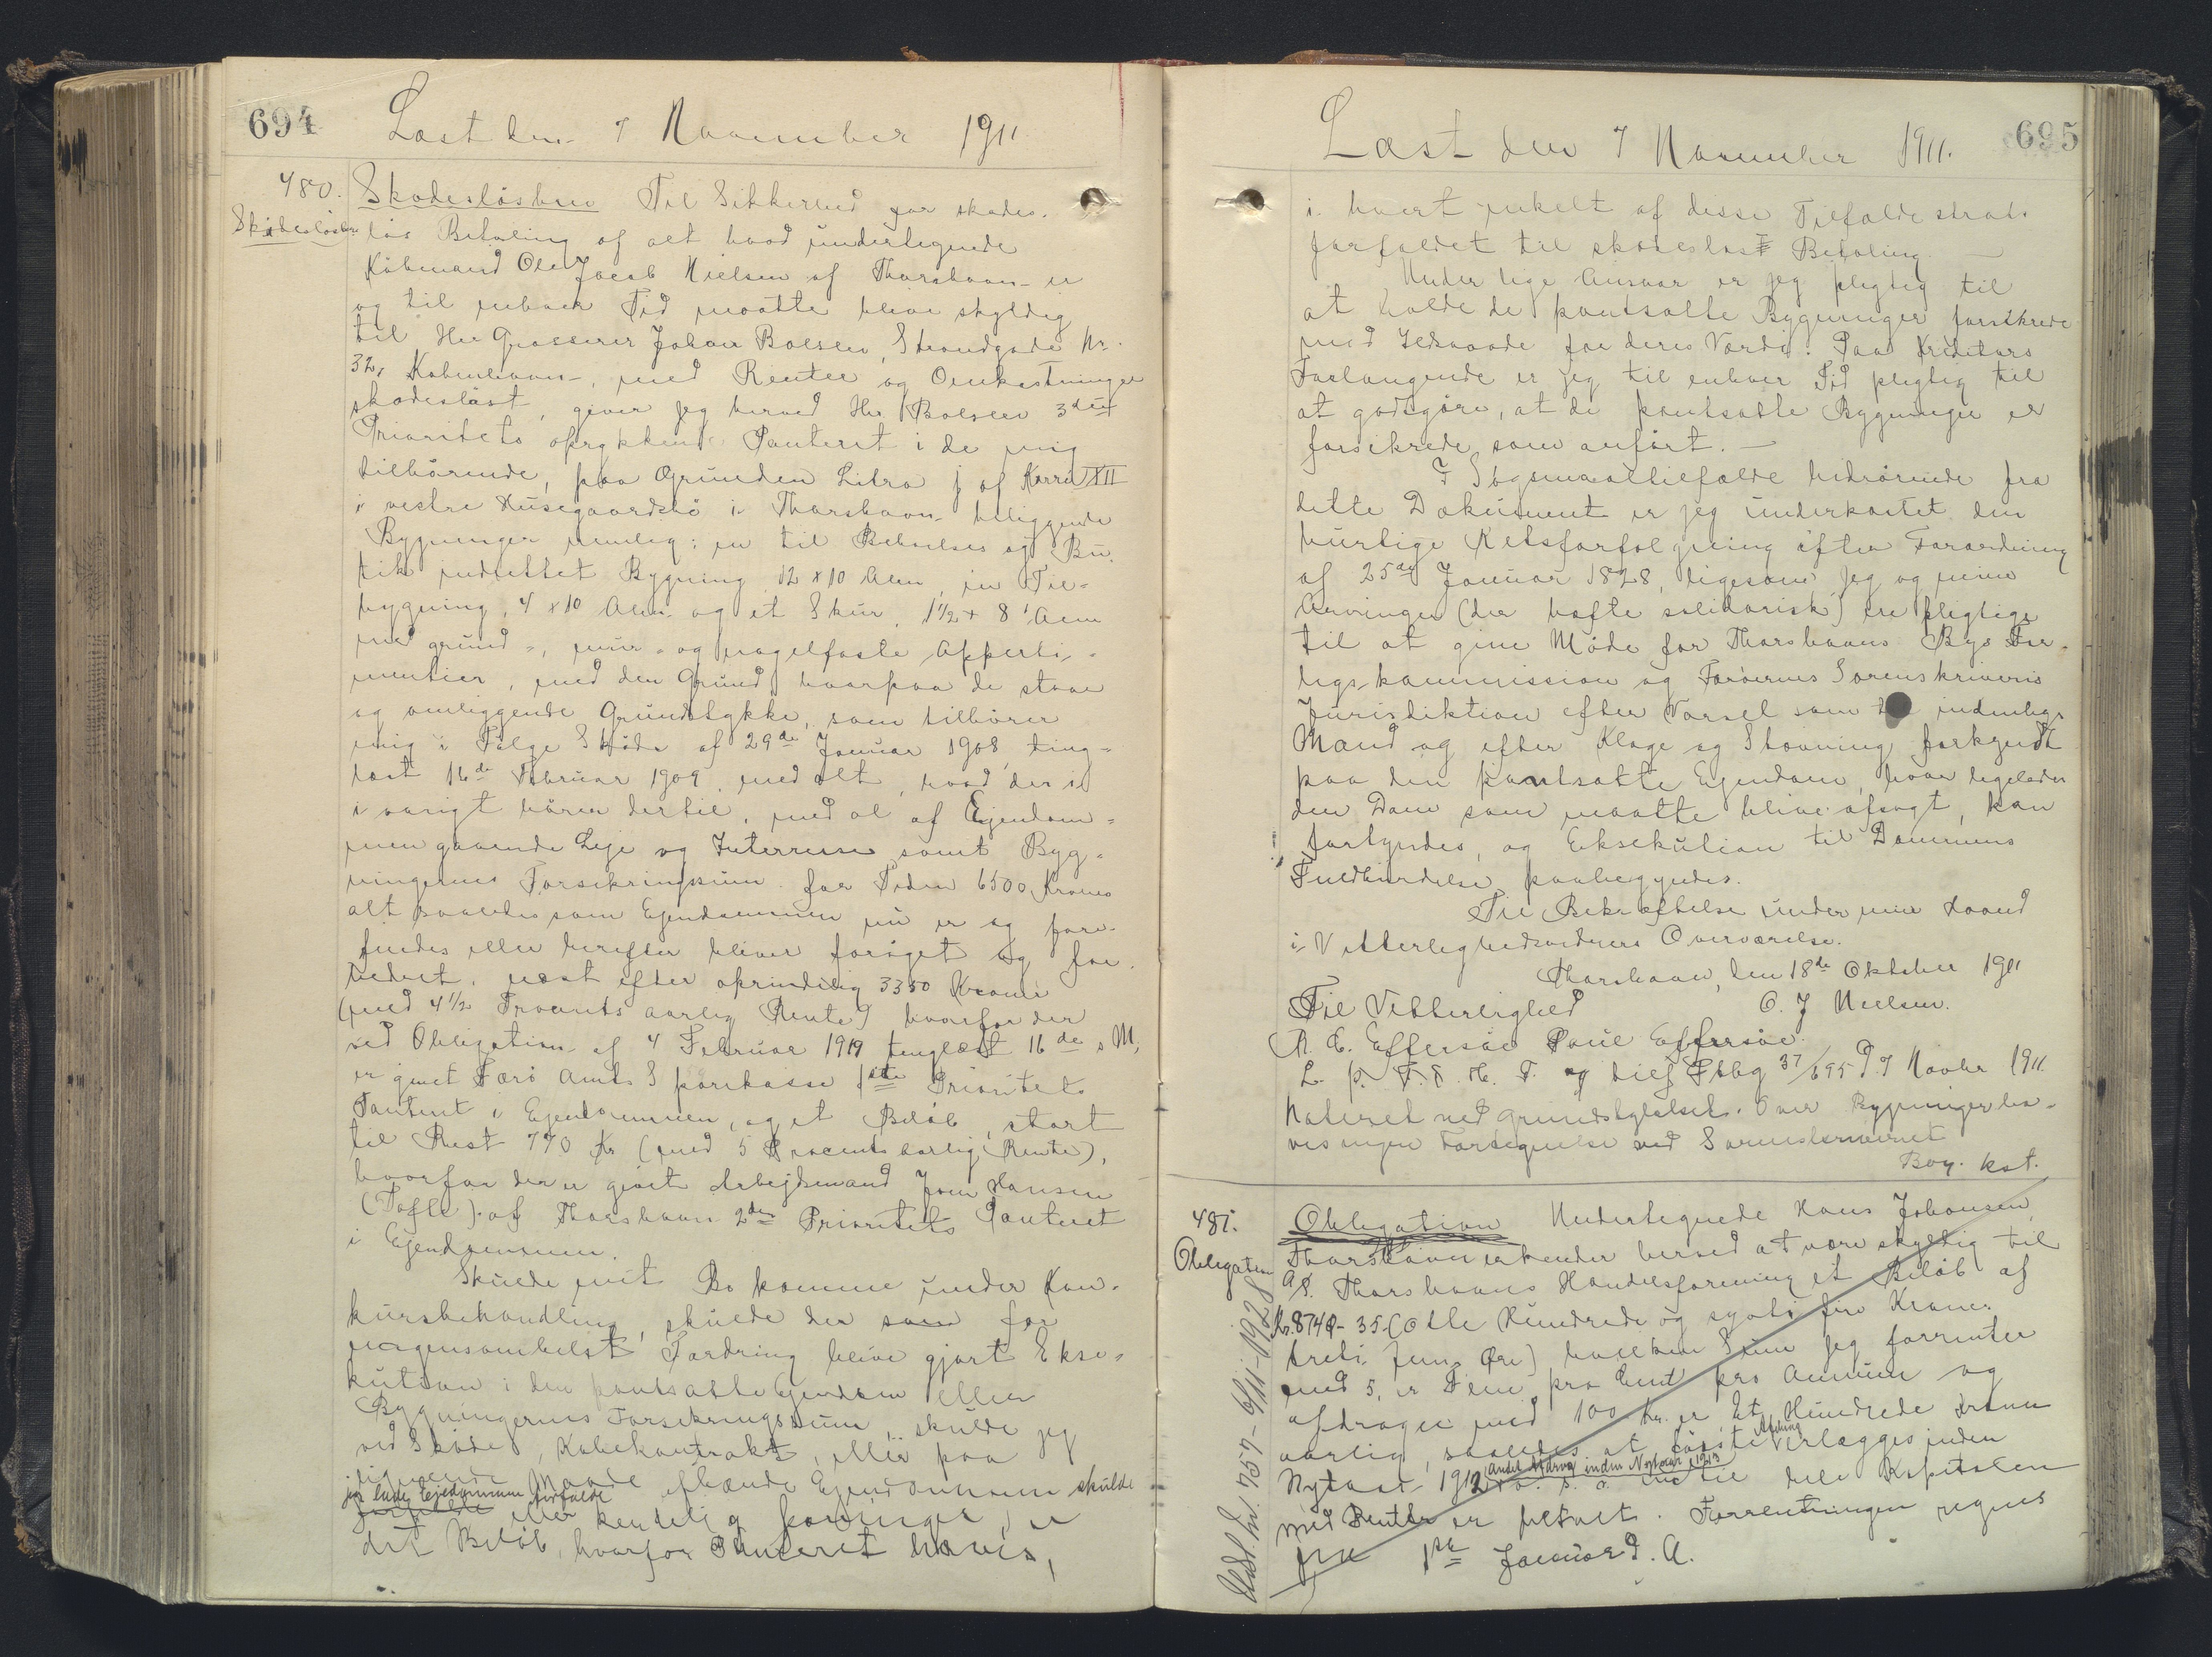 694
Læst den 7 November 1911
480.
Skadesløsbrev
Skadesløsbrev Til Sikkerhed for skades-
løs Betaling af alt hvad undertegnede
Købmand Ole Jacob Nielsen af Thorshavn er
og til enhver Tid maatte blive skyldig
til Hr Grosserer Johan Boesen, Strandgade Nr.
32, København, med Renter og Omkostninger
skadesløst, giver jeg herved Hr. Boesen 3die
Prioritets oprykkende Panteret i de mig
tilhørende, paa Grunden Litra f af Karré XII
i vestre Husegaardsbø i Thorshavn beliggende
Bygninger nemlig: en til Beboelses og Bu-
tik indrettet Bygning 12 x 10 Alen, en Til-
bygning, 4 x 10 Alen og et Skur, 1½ x 8 Alen
med grund-, mur- og nagelfaste Apperti-
nentier, med den Grund hvorpaa de staae
og omliggende Grundstykke, som tilhører
mig i Følge Skøde af 29de Januar 1908, ting-
læst 16de Februar 1909, med alt, hvad der til
i øvrigt hører dertil, med al af Ejendom-
men gaaende Leje og Interesse samt Byg-
ningernes Forsikringssum for Tiden 6500 Kroner
alt saaledes som Ejendommen nu er og fore-
findes eller herefter bliver forøget og for-
bedret, næst efter oprindelig 3350 Kroner
(med 4½ Procents aarlig Rente) hvorfor der
ved Obligation af 4 Februar 1919 tinglæst 16de s. M,
er givet Færø Amts Sparekasse 1ste Prioritets
Panteret i Ejendommen, og et Beløb, stort
til Rest 770 Kr (med 5 Procents aarlig Rente),
hvorfor der er givet Arbejdsmand Joen Hansen
(Tofte) af Thorshavn 2den Prioritets Panteret
i Ejendommen.
Skulde mit Bo komme under Kon-
kursbehandling, skulde der som for
nogensomhelst Fordring blive gjort Ekse-
kution i den pantsatte Ejendom eller
Bygningernes Forsikringssum, skulde jeg
ved Skøde, Købekontrakt, eller paa
lignende Maade afhænde Ejendommen skulde
jeg lade Ejendommen forfalde
forfalde eller kendelig forringes, er
det Beløb, hvorfor Panteret haves,
695
Læst den 7 November 1911.
i hvert enkelt af disse Tilfælde straks
forfaldet til skadesløs Betaling.
Under lige Ansvar er jeg pligtig til
at holde de pantsatte Bygninger forsikrede
mod Ildsvaade for deres Værdi. Paa Kreditors
Forlangende er jeg til enhver Tid pligtig til
at godtgøre, at de pantsatte Bygninger er
forsikrede som anført.
I Søgsmaalstilfælde hidrørende fra
dette Dokument er jeg underkastet den
hurtige Retsforfølgning efter Forordning
af 25de Januar 1828, ligesom jeg og mine
Arvinger (der hæfte solidarisk) ere pligtige
til at give Møde for Thorshavns Bys For-
ligskommission og Færøernes Sorenskriveris
Jurisdiktion efter Varsel som indenbys
Mand og efter Klage og Stævning forkyndt
paa den pantsatte Ejendom, hvor ligeledes
den Dom som maatte blive afsagt, kan
forkyndes, og Eksekution til Dommens
Fuldbyrdelse paabegyndes.
Til Bekræftelse under min Haand
i Vitterlighedsvidners Overværelse.
Thorshavn, den 18de Oktober 1911
Til Vitterlighed O. J Nielsen.
R. C. Effersøe Poul Effersøe
L. p. F. S. H. T. og tilf Skbg 37/695 d. 7 Novbr 1911.
Noteret ved Grundstykket. Over Bygninger ha-
ves ingen Fortegnelse ved Sorenskriveriet
Boy. kst.
481.
Obligation
Obligation Undertegnede Hans Johansen,
Thorshavn erkender herved at være skyldig til
A/S. Thorshavns Handelsforening et Beløb af
Kr. 874 - 35 (Otte Hundrede og syoti fire Kroner
treti fem Øre) hvilken Sum jeg forrenter
med 5, er Fem, pro Cent pro Annum og
afdrager med 100 Kr. er Et Hundrede Kroner
aarlig, saaledes at første Afdrag erlægges inden
Nytaar 1912, andet Afdrag inden Nytaar 1913 o. s. v. indtil hele Kapitalen
med Renter er betalt. Forrentningen regnes
fra 1ste Januar d. A.
Udsl. fol. 757 - 6/11-1928